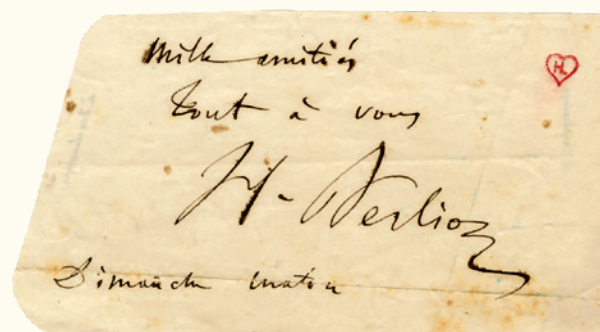 Mille amitiés
HL
tout à vous
H. Berlioz
Dimanche matin